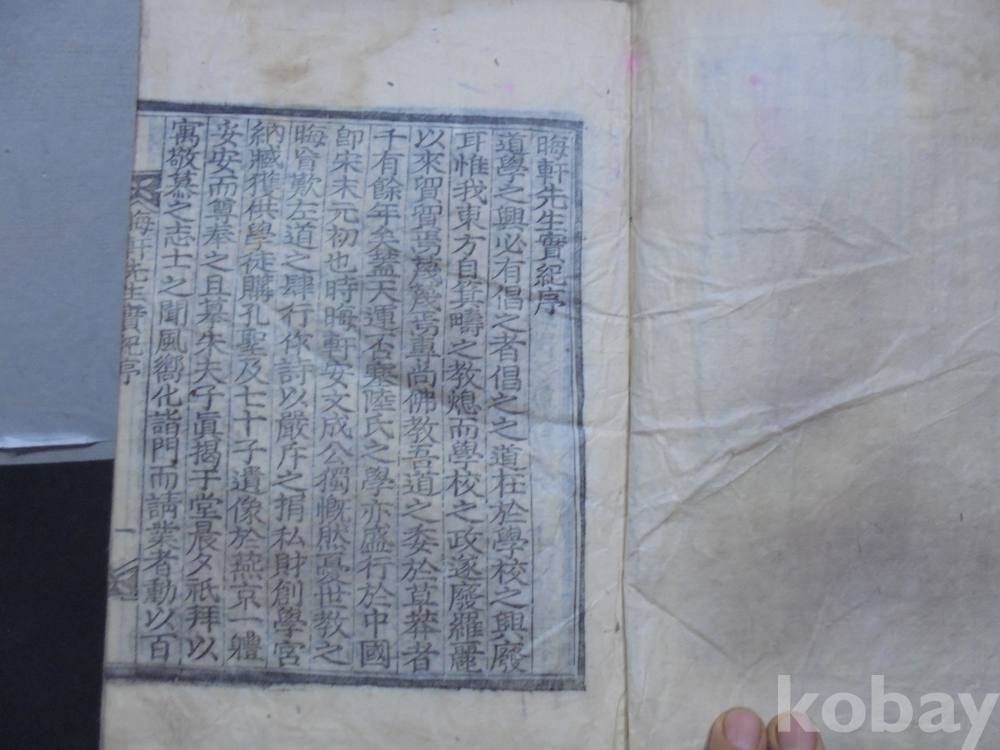 晦軒先生實紀序
道學之興必有倡之者倡之之道在於學校之興廢
耳惟我東方自箕疇之教熄而學校之政遂廢羅麗
以來貿貿焉蔑蔑焉專尚佛教吾道之委於草莽者
千有餘年矣盖天運否塞陸氏之學亦盛行於中國
卽宋末元初也時晦軒安文成公獨慨然憂世教之
晦嘗歎左道之肆行作詩以嚴斥之捐私財創學宮
納臧獲供學徒購孔聖及七十子遺像於燕京一軆
妥安而尊奉之且慕朱夫子眞揭于堂晨夕祇拜以
寓敬慕之志士之聞風嚮化詣門而請業者動以百
晦軒先生實紀序
一
kobay